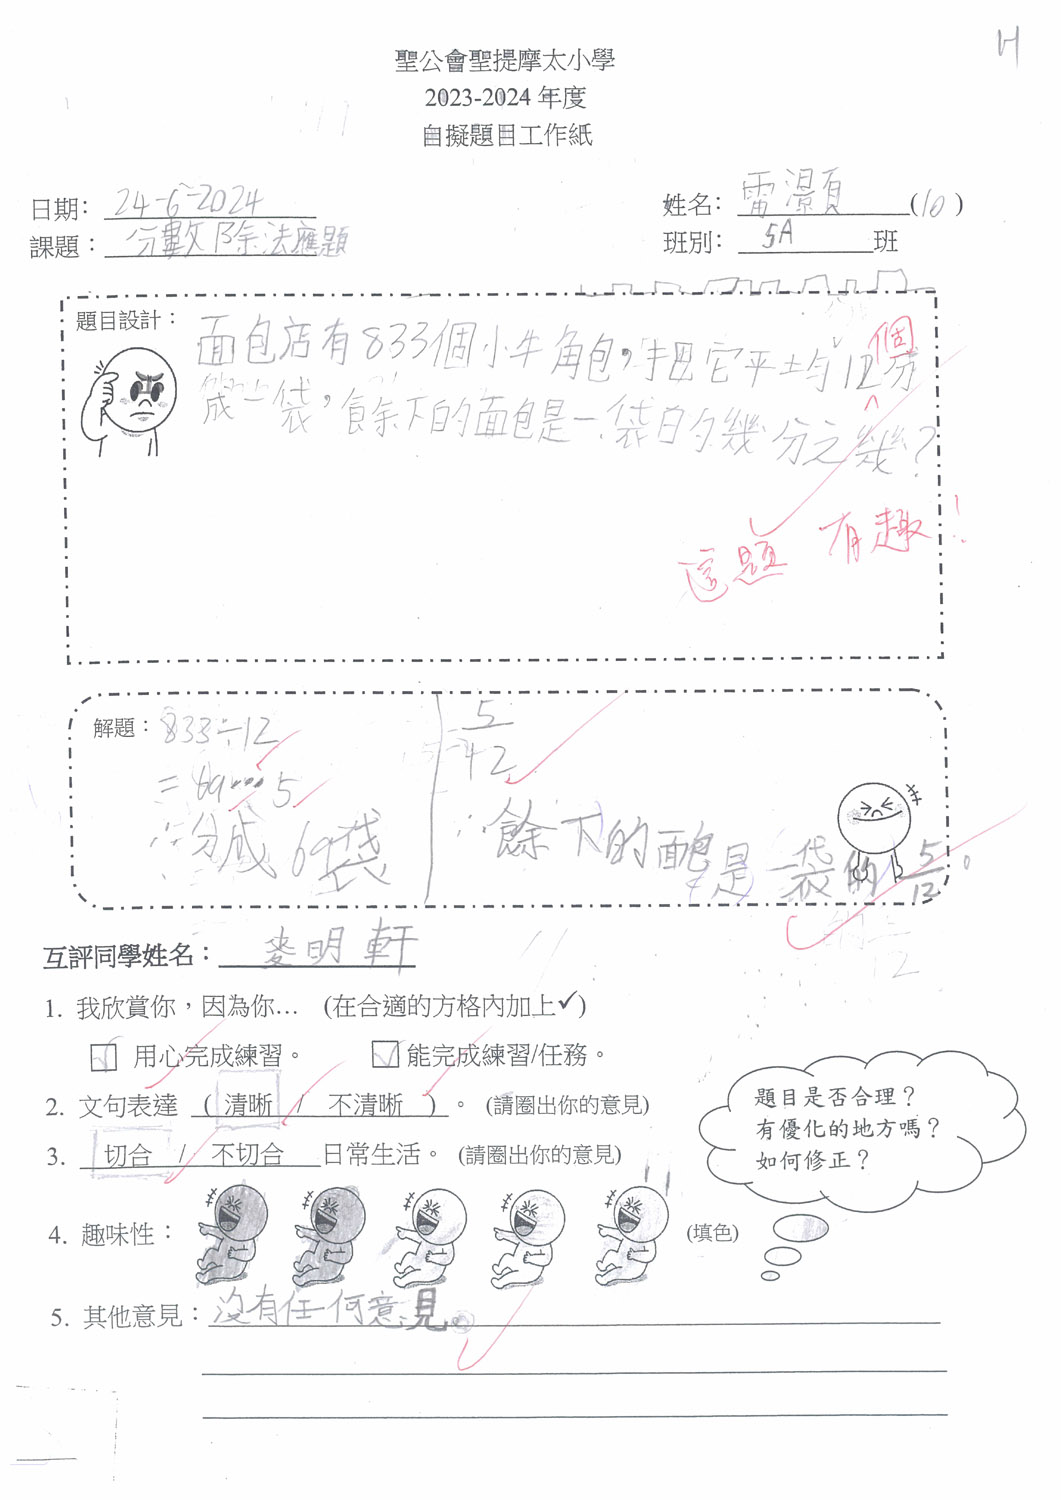 聖公會聖提摩太小學
2023-2024 年度
自擬題目工作紙
日期： 24-6-2024 姓名： 雷灝頁 (10)
課題： 分數除法應題 班別： 5A 班
題目設計：
面包店有833個小牛角包，把它平均12個分
成一袋，餘下的面包是一袋的幾分之幾？
這題 有趣！
解題：
833÷12
=69…5
∴分成 69袋
5
12
∴餘下的麵包是一袋的 5/12。
互評同學姓名： 麥明軒
1. 我欣賞你，因為你... (在合適的方格內加上✓)
☑ 用心完成練習。 ☑ 能完成練習/任務。
2. 文句表達 ( 清晰 / 不清晰 ) 。 (請圈出你的意見)
3. 切合 / 不切合 日常生活。 (請圈出你的意見)
題目是否合理？
有優化的地方嗎？
如何修正？
4. 趣味性： (填色)
5. 其他意見： 沒有任何意見。